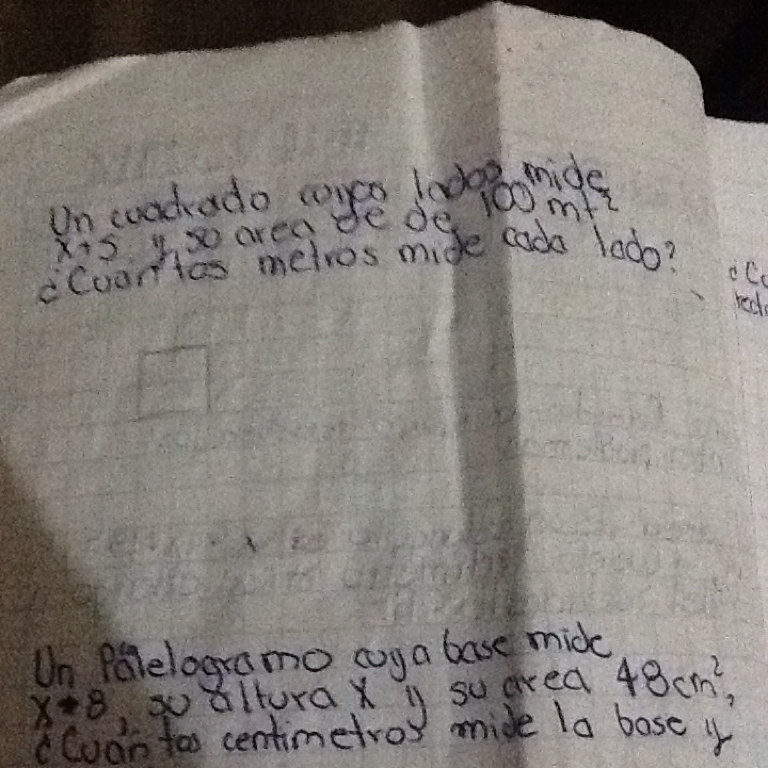 Un cuadrado cuyos lados mide
x+5 y su area de de 100 mt²
¿Cuantos metros mide cada lado?
¿Cu
Un Palelogramo cuya base mide
x+8, su altura x y su area 48cm²,
¿Cuantos centimetros mide la base y